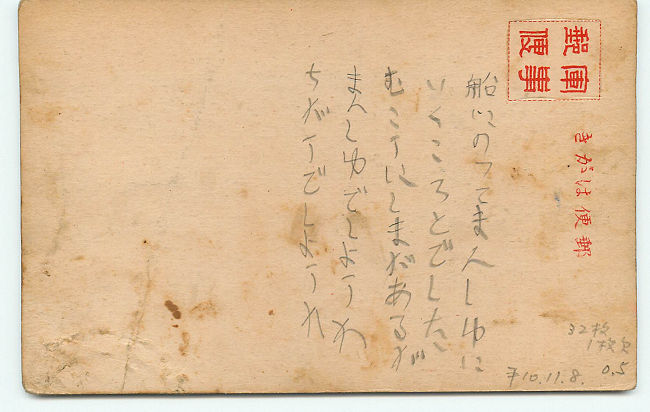 軍事
郵便
郵便はがき
船にのってまんしゆに
いくころとでした
むこうにしまがあるが
まんしゆでしようか
ちがうでしようね
32枚
1枚欠
0.5
平10.11.8.